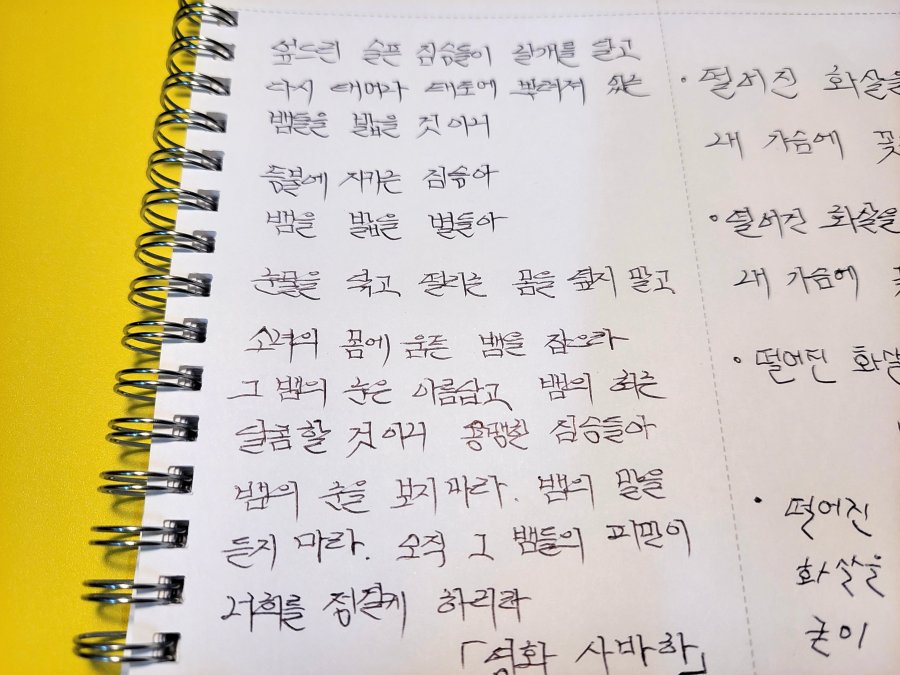 엎드린 슬픈 짐승들이 날개를 달고
다시 태어나 태초에 뿌려져 있는
뱀들을 밟을 것이니
등불에 자라는 짐승아
뱀을 밟을 별들아
눈물을 닦고 떨리는 몸을 숨기지 말고
소녀의 몸에 움튼 뱀을 잡으라
그 뱀의 눈은 아름답고 뱀의 혀는
달콤할 것이니 용맹한 짐승들아
뱀의 눈을 보지 마라. 뱀의 말을
듣지 마라. 오직 그 뱀들의 피만이
너희를 정결케 하리라
「영화 사바하」
• 떨어진 화살을
내 가슴에 꽂
• 떨어진 화살을
내 가슴에
• 떨어진 화살
• 떨어진
화살을
굳이